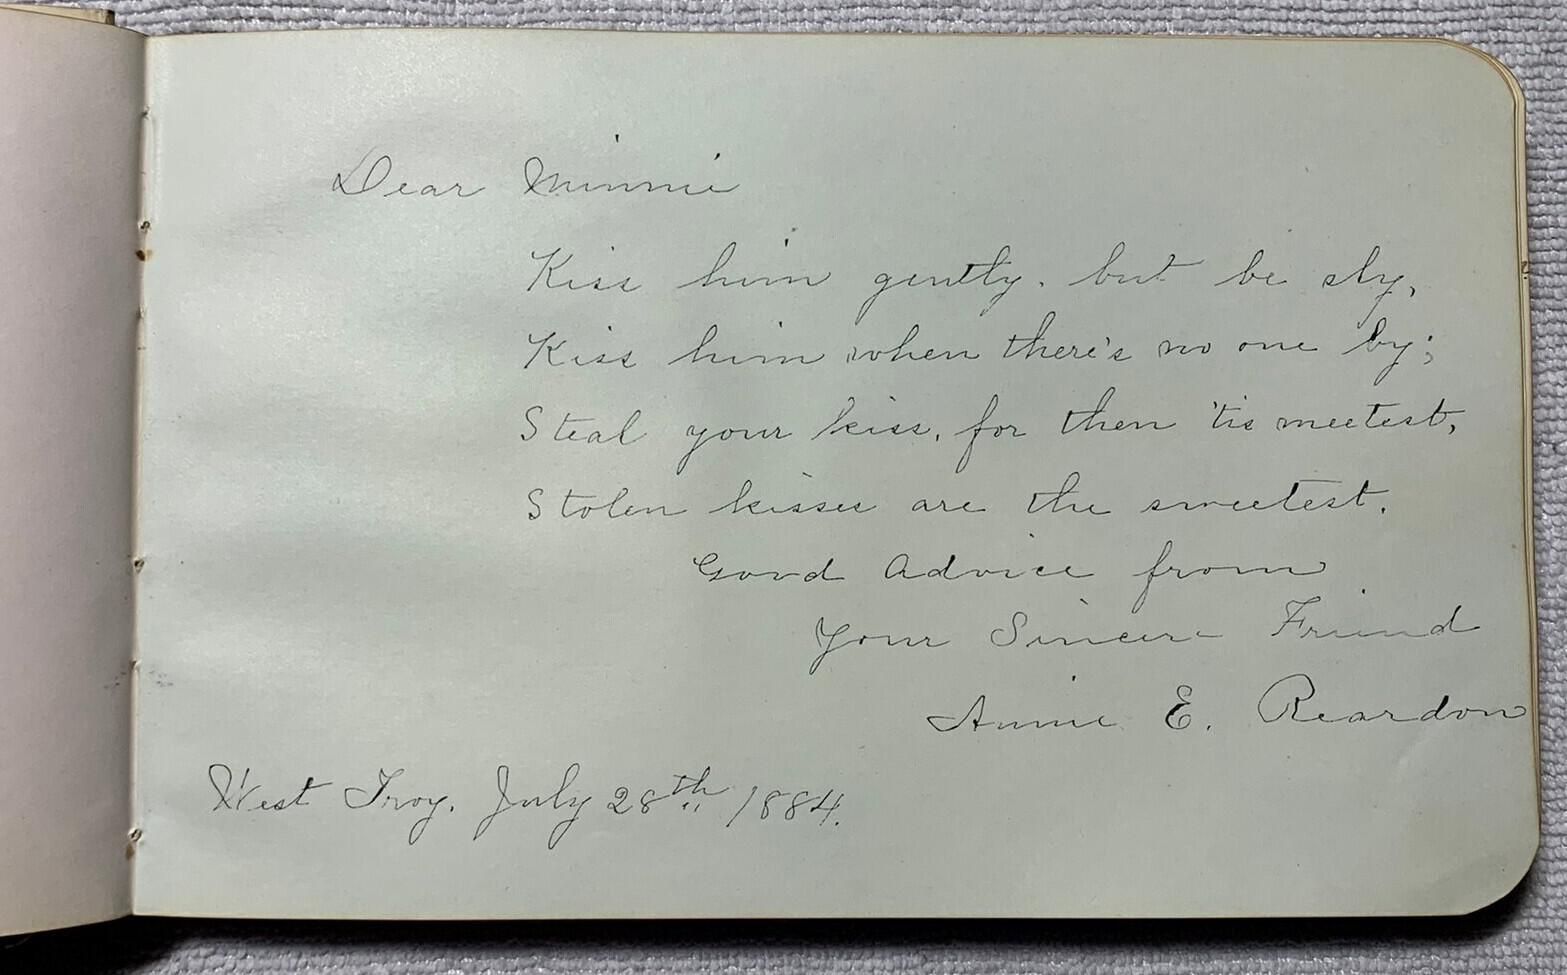 Dear Minnie
Kiss him gently, but be sly,
Kiss him when there's no one by;
Steal your kiss, for then 'tis meetest,
Stolen kisses are the sweetest.
Good Advice from
Your Sincere Friend
Annie E. Reardon
West Troy, July 28th 1884.